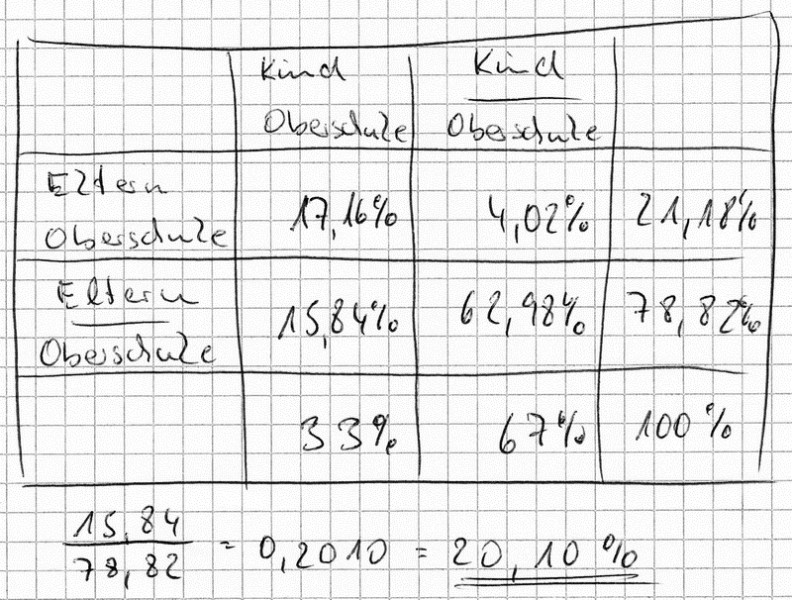 Kind Kind
Oberschule Oberschule
Eltern
Oberschule 17,16% 4,02% 21,18%
Eltern
Oberschule 15,84% 62,98% 78,82%
33% 67% 100%
15,84
78,82 = 0,2010 = 20,10%